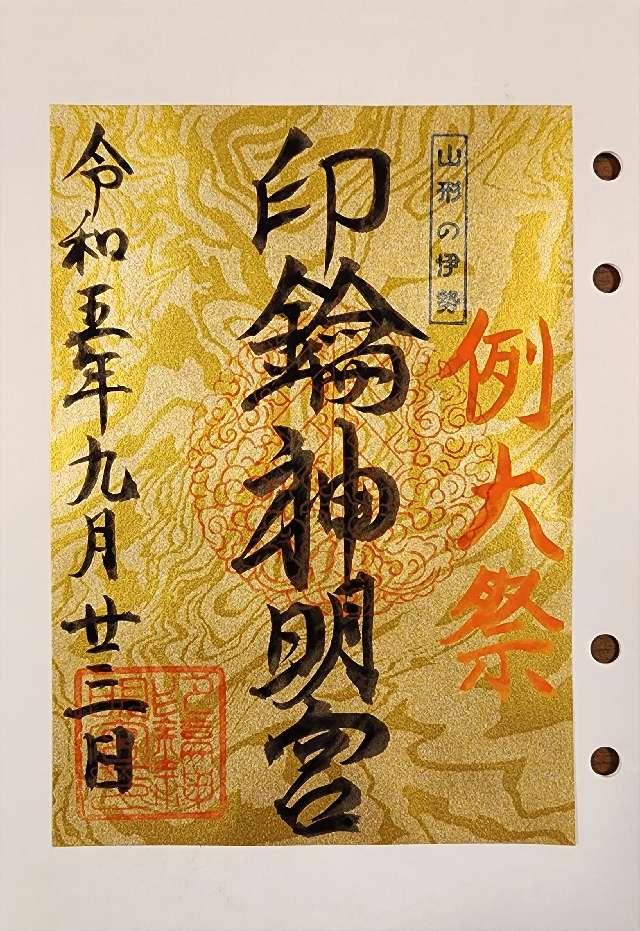 山形の伊勢
例大祭
印鑰神明宮
令和五年九月廿三日